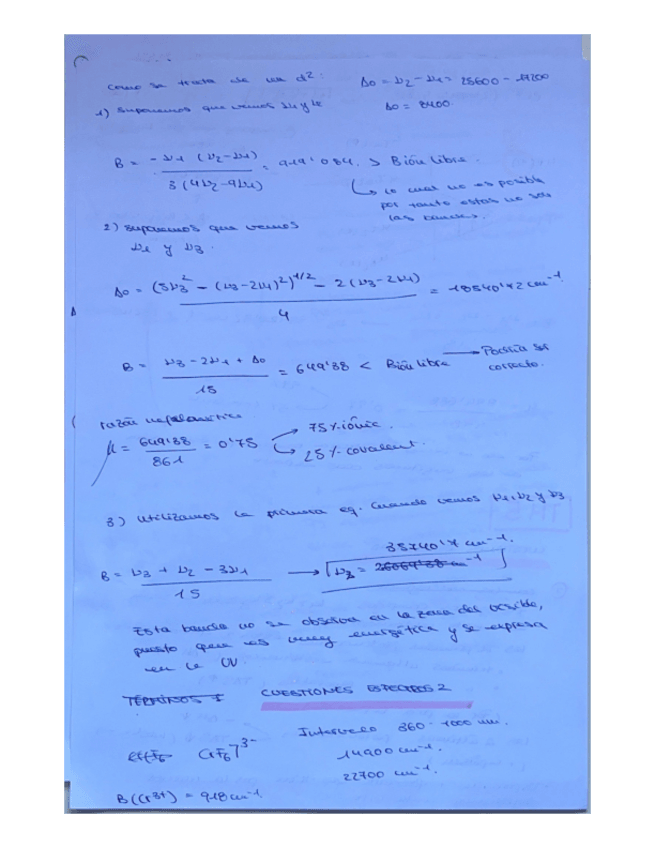 Como se trata de un d²:
Δo = ν2 - ν1 = 25600 - 17200
Δo = 8400
1) Suponemos que vemos ν1 y ν2
B = -ν1 (ν2-ν1) / 3 (4ν2-9ν1) = 919'084 > B ión libre.
↳ lo cual no es posible
por tanto estas no son
las bandas.
2) Suponemos que vemos
ν1 y ν3.
Δo = (5ν3² - (ν3-2ν1)²)^1/2 - 2 (ν3-2ν1) / 4 = 18540'42 cm⁻¹.
B = ν3 - 2ν1 + Δo / 15 = 649'38 < B ión libre → Podría ser
correcto.
razón nefelauxética
μ = 649'38 / 861 = 0'75
→ 75% iónic.
↳ 25% covalent.
3) Utilizamos la primera eq. Cuando vemos ν1, ν2 y ν3
35740'7 cm⁻¹.
B = ν3 + ν2 - 3ν1 / 15 → ν3 = 26069'38 cm⁻¹
Esta banda no se observa en la zona del visible,
puesto que es muy energética y se expresa
en el UV.
TÉRMINOS 1 CUESTIONES ESPECTROS 2
CrF6]³⁻
Intervalo 360-1000 nm.
14900 cm⁻¹.
22700 cm⁻¹.
B(Cr3+) = 918 cm⁻¹.